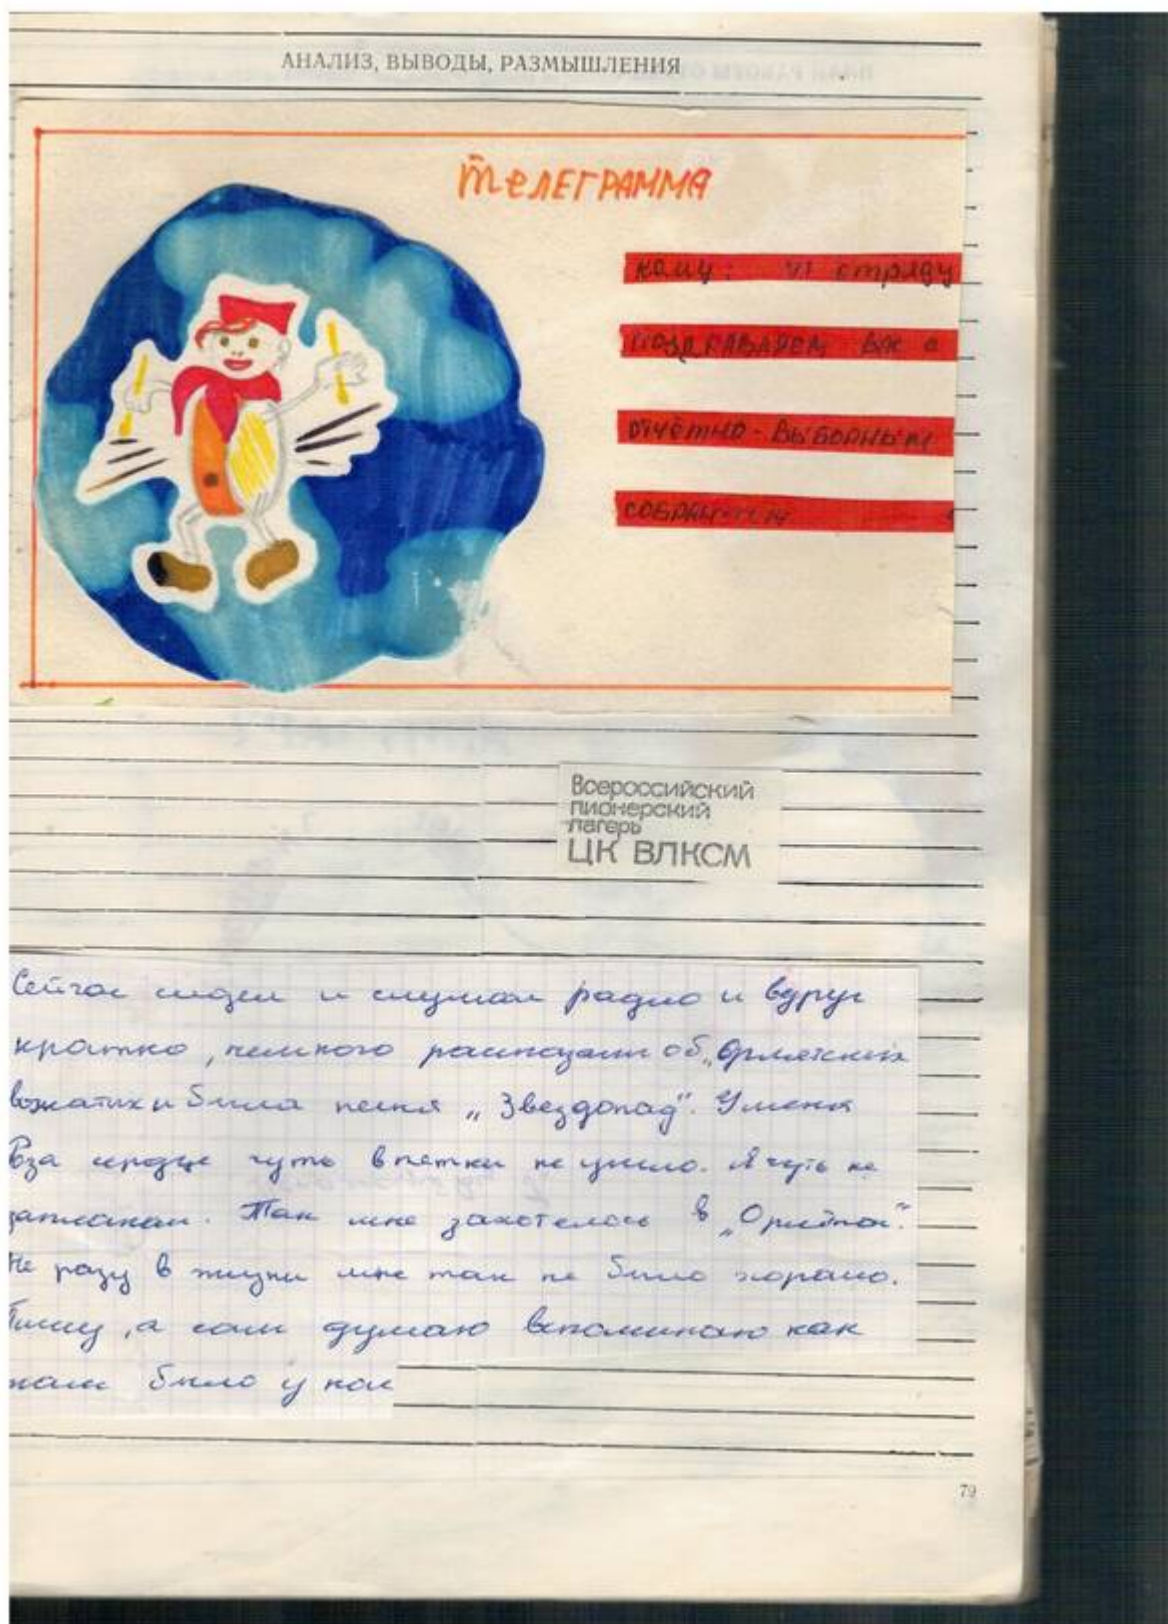 АНАЛИЗ, ВЫВОДЫ, РАЗМЫШЛЕНИЯ
ТЕЛЕГРАММА
Кому: VI отряду
ПОЗДРАВЛЯЕМ ВАС С
ОТЧЁТНО-ВЫБОРНЫМ
СОБРАНИЕМ
Всероссийский
пионерский
лагерь
ЦК ВЛКСМ
Сейчас сидел и слушал радио и вдруг
кратко, немного рассказали об „Орлятских
вожатых и была песня „Звездопад". У меня
сердце чуть в пятки не ушло. Я чуть не
заплакал. Так мне захотелось в „Орлёнок".
Не разу в жизни мне так не было хорошо.
Пишу, а сам думаю вспоминаю как
нам было у нас
79